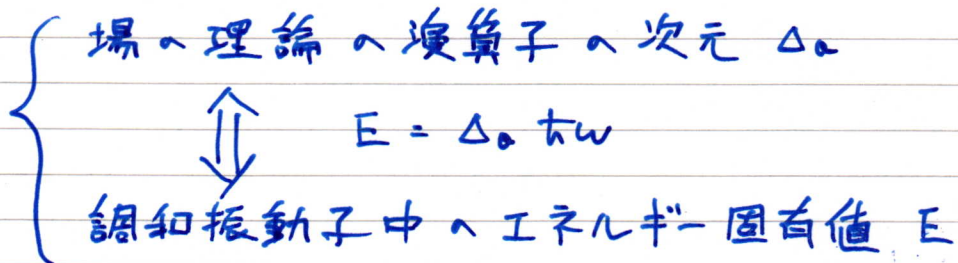 場の理論の演算子の次元 Δo
⇕ E = Δo ħω
調和振動子中のエネルギー固有値 E